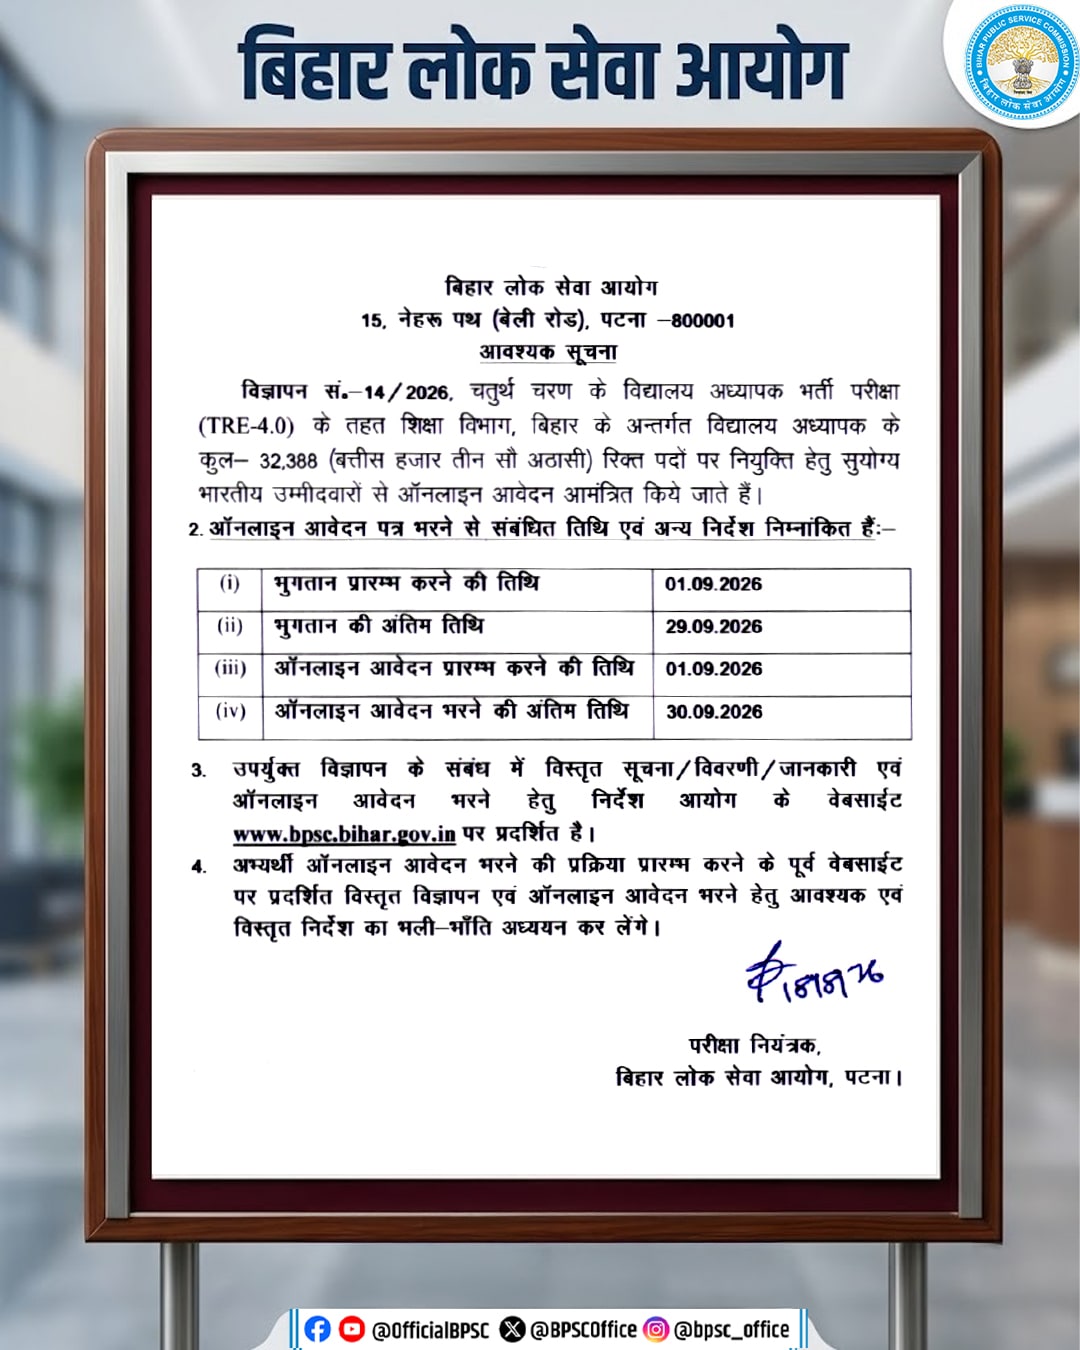 बिहार लोक सेवा आयोग
BIHAR PUBLIC SERVICE COMMISSION
बिहार लोक सेवा आयोग
बिहार लोक सेवा आयोग
15, नेहरू पथ (बेली रोड), पटना –800001
आवश्यक सूचना
विज्ञापन सं.–14/2026, चतुर्थ चरण के विद्यालय अध्यापक भर्ती परीक्षा
(TRE-4.0) के तहत शिक्षा विभाग, बिहार के अन्तर्गत विद्यालय अध्यापक के
कुल– 32,388 (बत्तीस हजार तीन सौ अठासी) रिक्त पदों पर नियुक्ति हेतु सुयोग्य
भारतीय उम्मीदवारों से ऑनलाइन आवेदन आमंत्रित किये जाते हैं।
2. ऑनलाइन आवेदन पत्र भरने से संबंधित तिथि एवं अन्य निर्देश निम्नांकित हैं:–
(i) भुगतान प्रारम्भ करने की तिथि 01.09.2026
(ii) भुगतान की अंतिम तिथि 29.09.2026
(iii) ऑनलाइन आवेदन प्रारम्भ करने की तिथि 01.09.2026
(iv) ऑनलाइन आवेदन भरने की अंतिम तिथि 30.09.2026
3. उपर्युक्त विज्ञापन के संबंध में विस्तृत सूचना/विवरणी/जानकारी एवं
ऑनलाइन आवेदन भरने हेतु निर्देश आयोग के वेबसाईट
www.bpsc.bihar.gov.in पर प्रदर्शित है।
4. अभ्यर्थी ऑनलाइन आवेदन भरने की प्रक्रिया प्रारम्भ करने के पूर्व वेबसाईट
पर प्रदर्शित विस्तृत विज्ञापन एवं ऑनलाइन आवेदन भरने हेतु आवश्यक एवं
विस्तृत निर्देश का भली–भाँति अध्ययन कर लेंगे।
परीक्षा नियंत्रक,
बिहार लोक सेवा आयोग, पटना।
@OfficialBPSC @BPSCOffice @bpsc_office